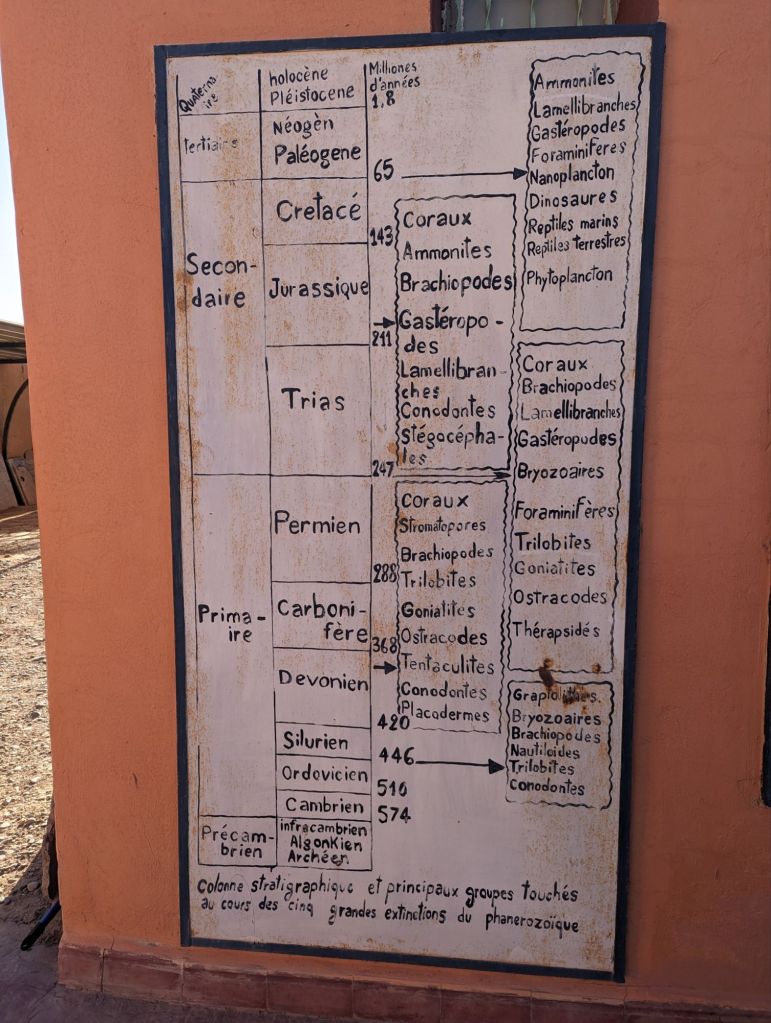 Quaterna
ire
holocène
Pléistocene
Milliones
d'années
1,8
tertiaire
Néogèn
Paléogene
65
Secon-
daire
Cretacé
143
Jurassique
211
Trias
247
Prima-
ire
Permien
288
Carboni-
fère
368
Devonien
420
Silurien
446
Ordovicien
510
Cambrien
574
Précam-
brien
infracambrien
AlgonKien
Archéen
Ammonites
Lamellibranches
Gastéropodes
Foraminiferes
Nanoplancton
Dinosaures
Reptiles marins
Reptiles terrestres
Phytoplancton
Coraux
Ammonites
Brachiopodes
Gastéropo-
des
Lamellibran-
ches
Conodontes
Stégocépha-
les
Coraux
Brachiopodes
Lamellibranches
Gastéropodes
Bryozoaires
Foraminifères
Trilobites
Goniatites
Ostracodes
Thérapsidés
Coraux
Stromatopores
Brachiopodes
Trilobites
Goniatites
Ostracodes
Tentaculites
Conodontes
Placodermes
Graptolithes.
Bryozoaires
Brachiopodes
Nautiloides
Trilobites
Conodontes
Colonne stratigraphique et principaux groupes touchés
au cours des cinq grandes extinctions du phanerozoïque